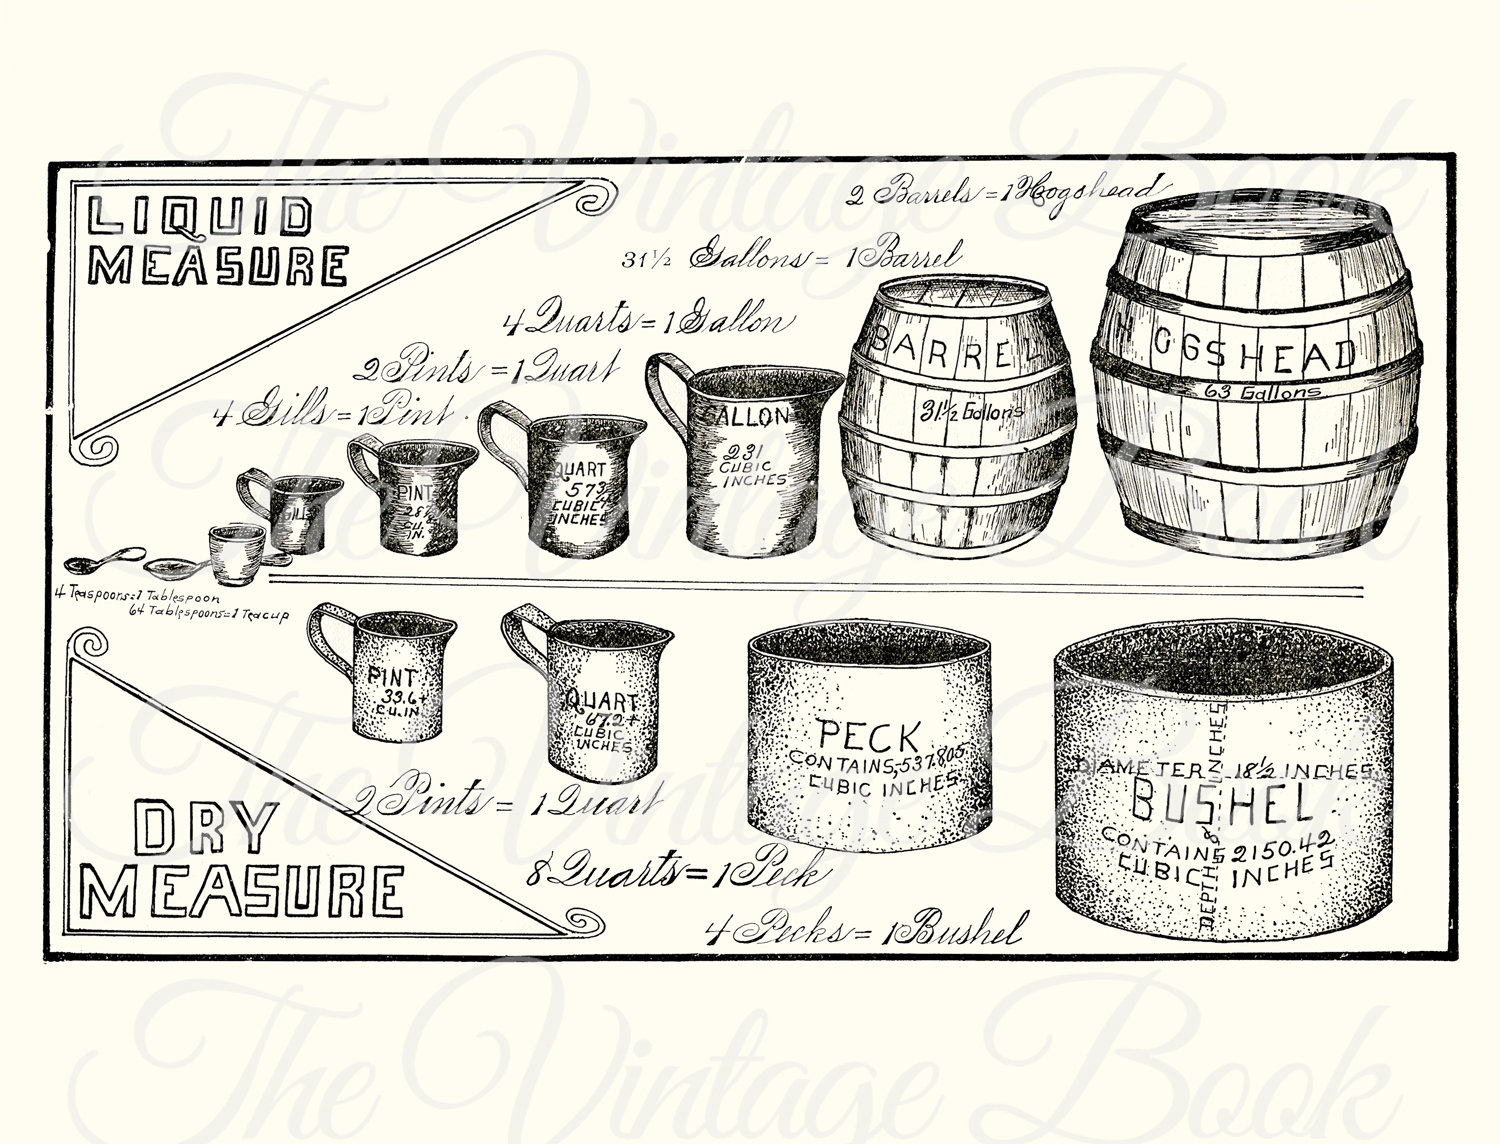 The Vintage Book
LIQUID
MEASURE
2 Barrels = 1 Hogshead
31 1/2 Gallons = 1 Barrel
4 Quarts = 1 Gallon
2 Pints = 1 Quart
4 Gills = 1 Pint.
GILL
PINT
CU.
IN.
QUART
CUBIC
INCHES
GALLON
231
CUBIC
INCHES
BARREL
31 1/2 Gallons
HOGSHEAD
63 Gallons
4 Teaspoons=1 Tablespoon
64 Tablespoons=1 Teacup
DRY
MEASURE
PINT
33.6+
CU.IN
QUART
67.2+
CUBIC
INCHES
PECK
CONTAINS,537.605
CUBIC INCHES
DIAMETER 18 1/2 INCHES
BUSHEL
CONTAINS 2150.42
CUBIC INCHES
DEPTH 8 INCHES
2 Pints = 1 Quart
8 Quarts = 1 Peck
4 Pecks = 1 Bushel
The Vintage Book
The Vintage Book